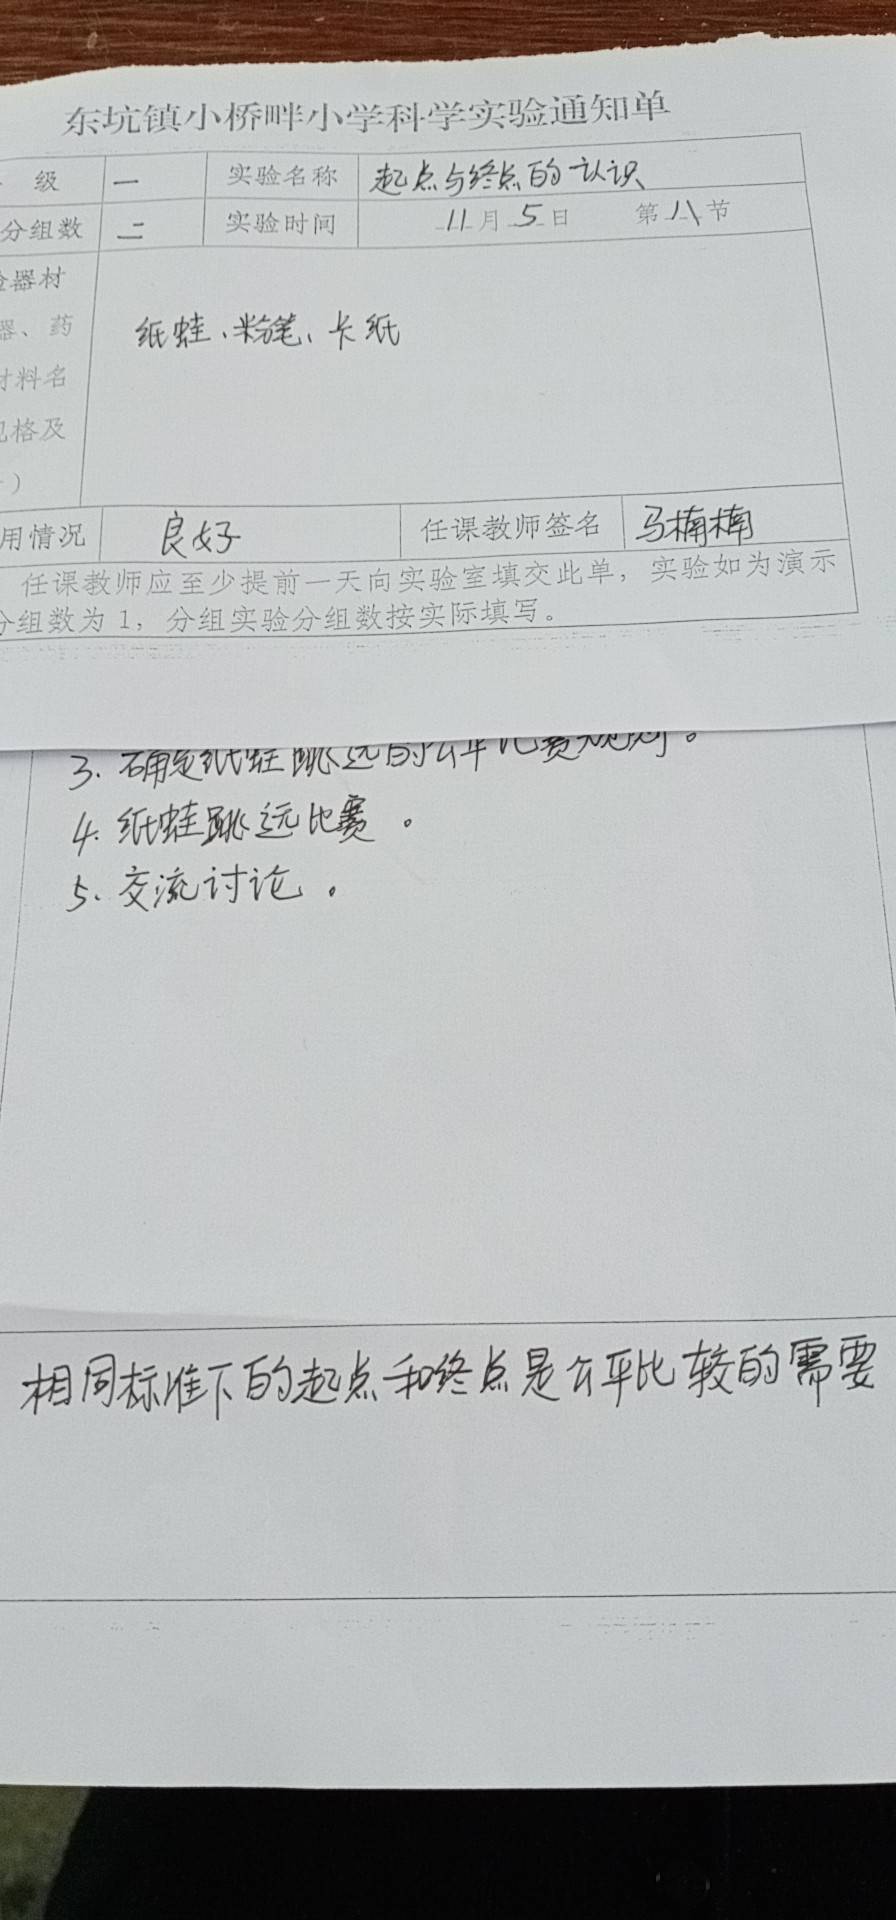 东坑镇小桥畔小学科学实验通知单
级 一 实验名称 起点与终点的认识
分组数 二 实验时间 11月5日 第八节
器材
器、药 纸蛙、粉笔、卡纸
材料名
格及
)
用情况 良好 任课教师签名 马楠楠
任课教师应至少提前一天向实验室填交此单，实验如为演示
分组数为1，分组实验分组数按实际填写。
3. 确定纸蛙跳远的公平比赛规则。
4. 纸蛙跳远比赛。
5. 交流讨论。
相同标准下的起点和终点是公平比较的需要